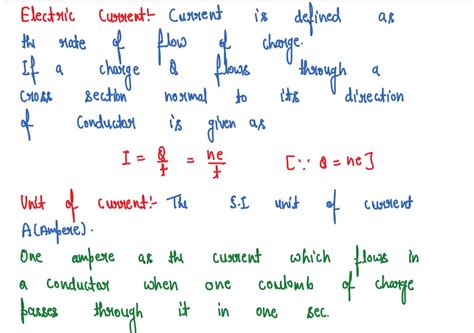 Electric Current:- Current is defined as
the rate of flow of charge.
If a charge Q flows through a
cross section normal to its direction
of conductor is given as
I = Q/t = ne/t [∵ Q = ne]
Unit of current:- The S.I unit of current
A(Ampere).
One ampere as the current which flows in
a conductor when one coulomb of charge
passes through it in one sec.